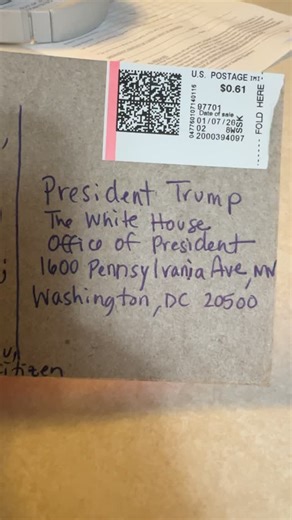 U.S. POSTAGE IMI
$0.61
97701
Date of sale
01/07/20
02 8W
2000394097
SSK
047760107140116
FOLD HERE
President Trump
The White House
Office of President
1600 Pennsylvania Ave, NW
Washington, DC 20500
citizen